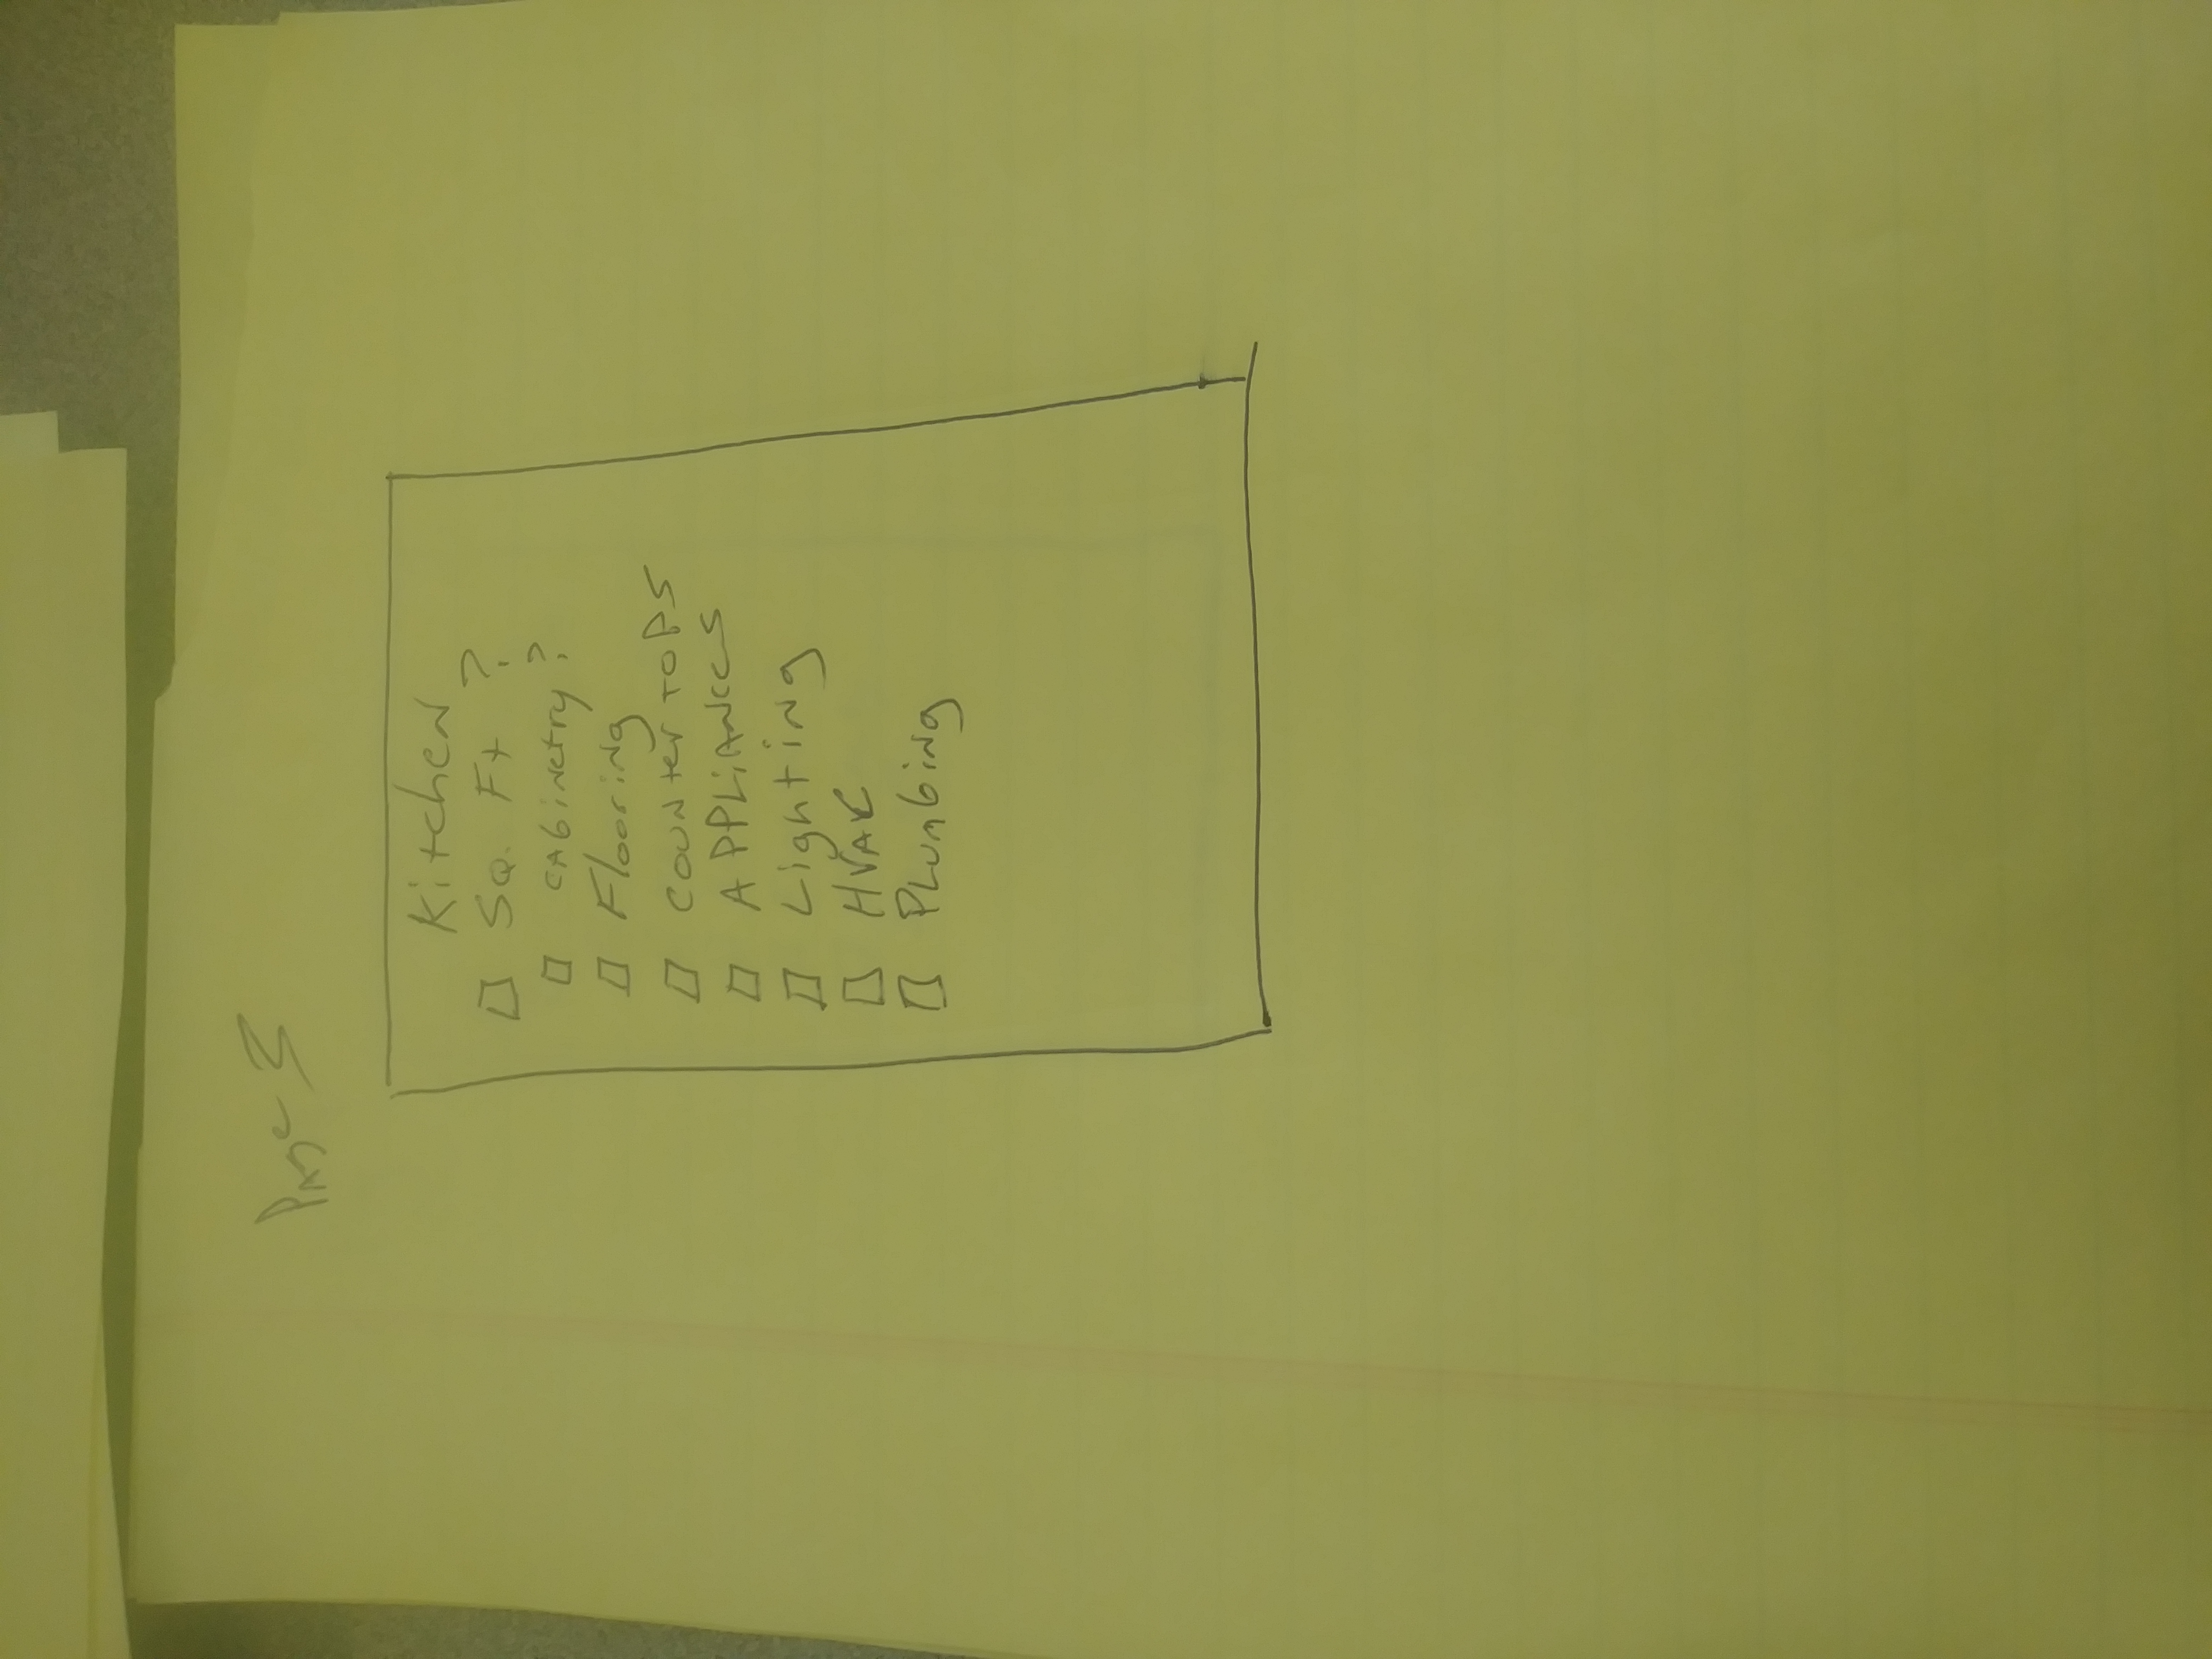 Page 3
Kitchen
□ SQ. Ft ?
□ CAbinetry?
□ Flooring
□ COUNter TOPS
□ APPLiANCES
□ Lighting
□ HVAC
□ PLumbing